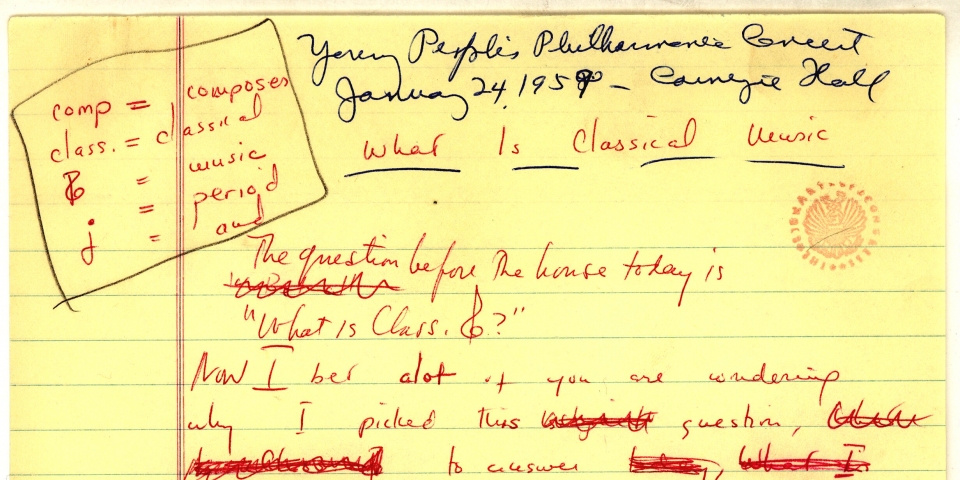 Young People's Philharmonic Concert
January 24, 1959 – Carnegie Hall
What Is Classical Music
comp = composes
class. = classical
= music
= period
j = and
The question before the house today is
"What is Class. ?"
Now I bet alot of you are wondering
why I picked this question,
to answer What Is